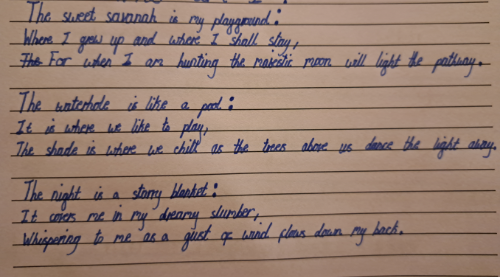 The sweet savannah is my playground:
Where I grew up and where I shall stay,
The For when I am hunting the majestic moon will light the pathway.
The waterhole is like a pool:
It is where we like to play,
The shade is where we chill as the trees above us dance the light away.
The night is a starry blanket:
It covers me in my dreamy slumber,
Whispering to me as a gust of wind flows down my back.